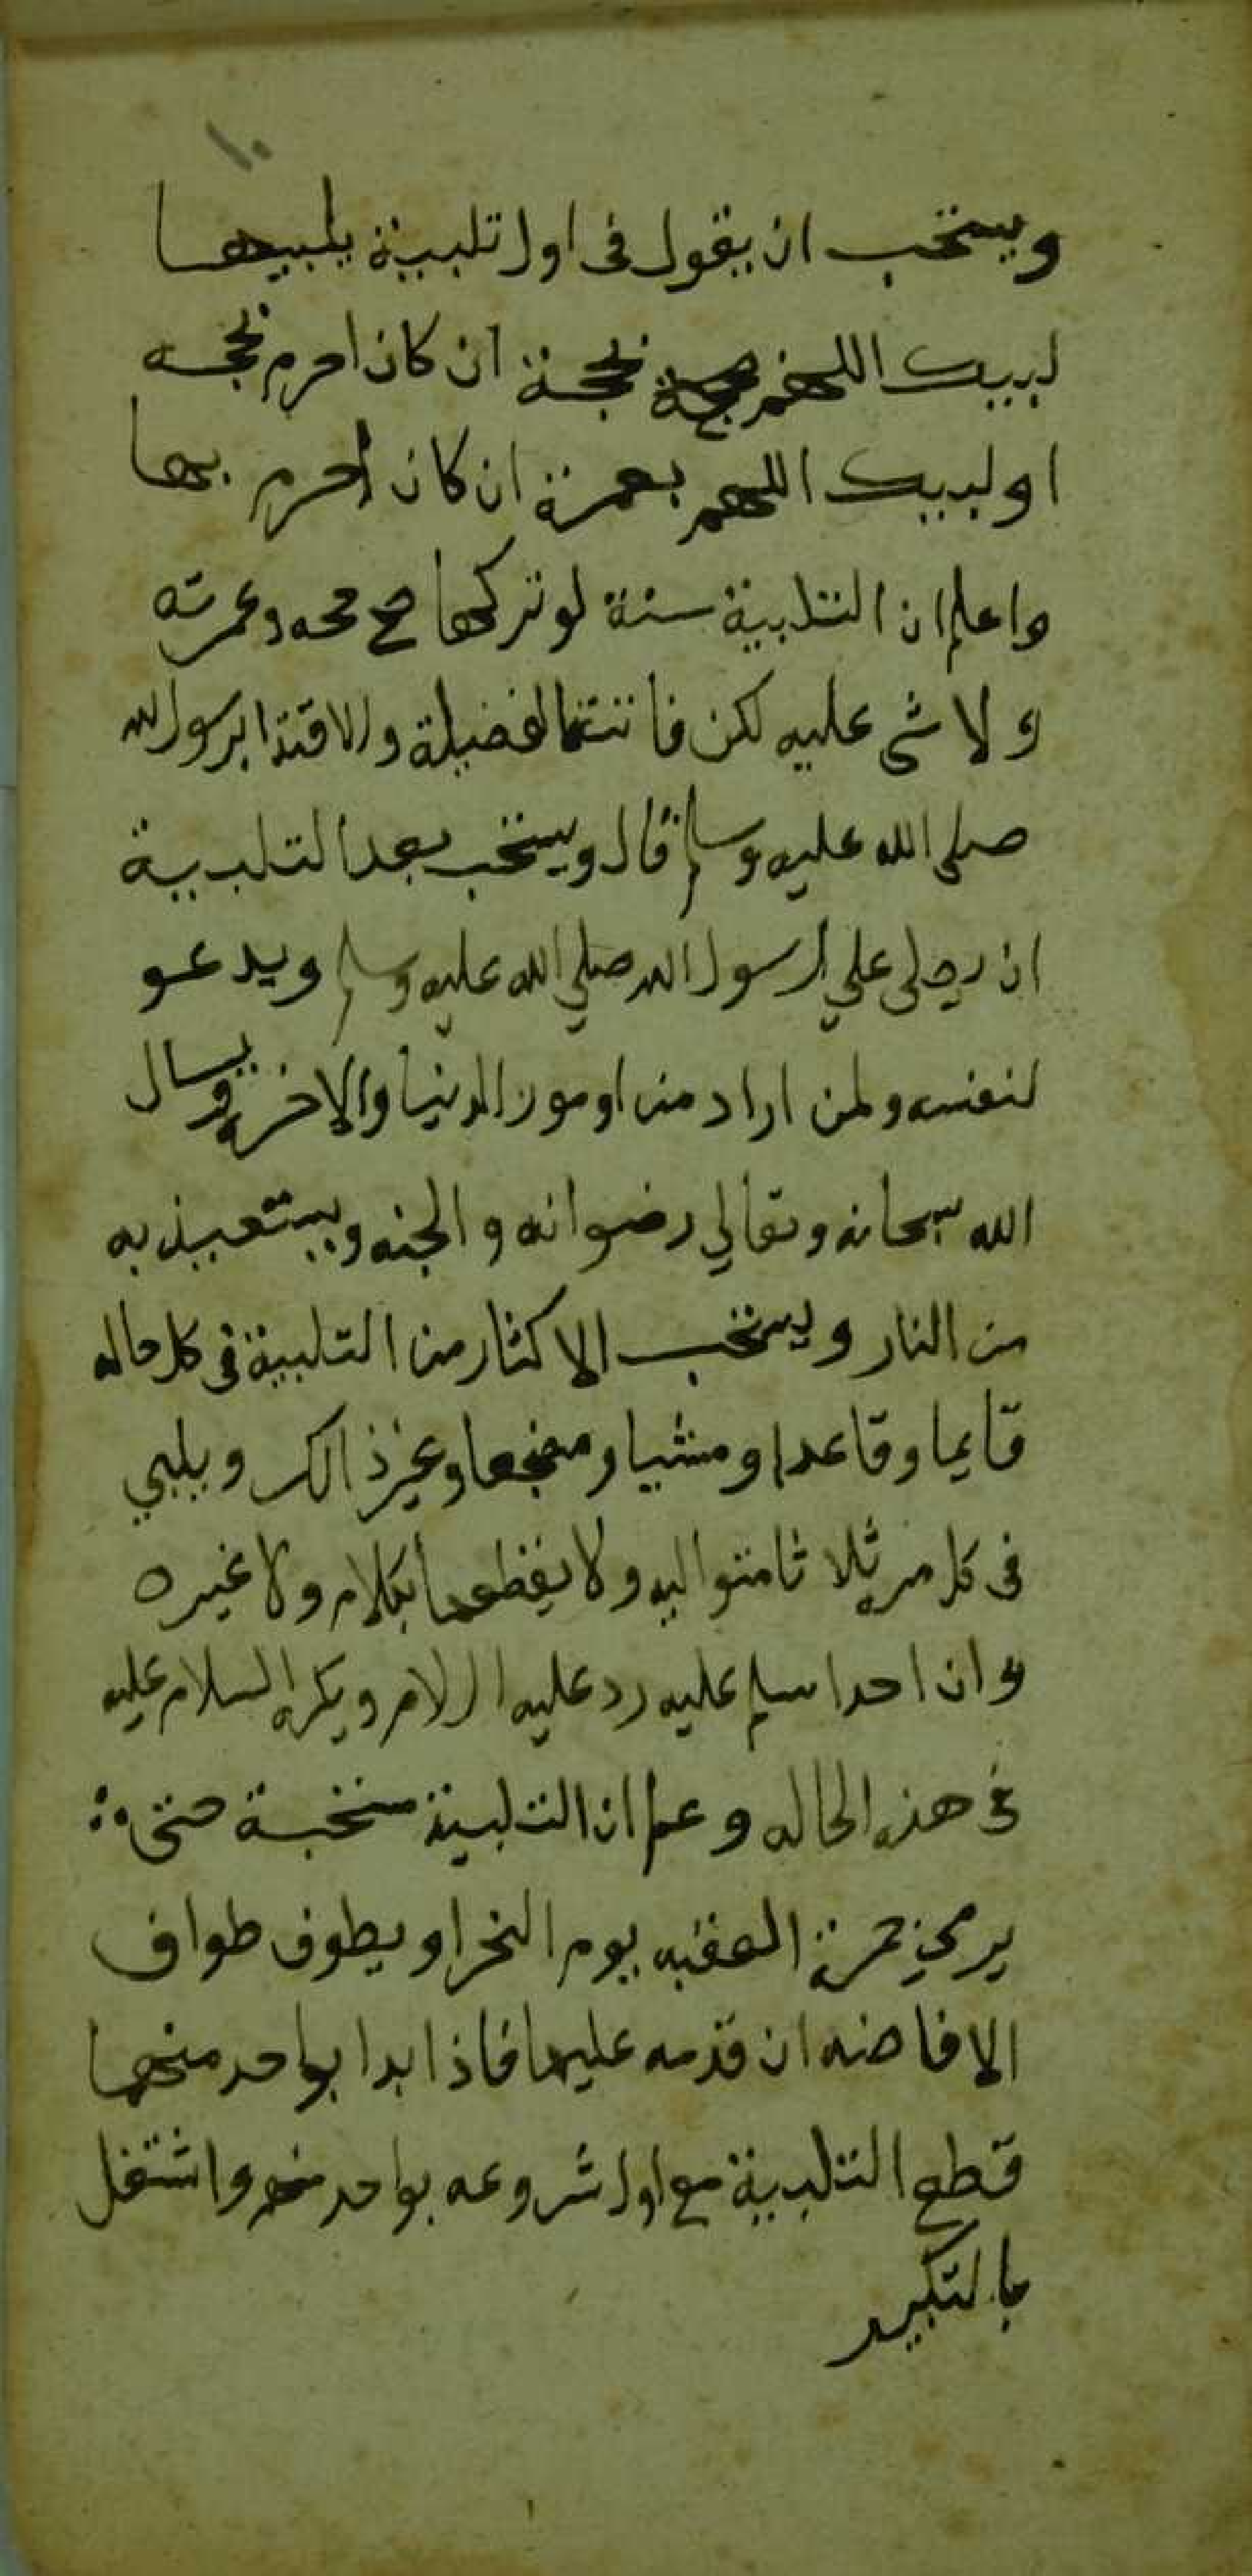 ١٠
ويستحب ان يقول فى اول تلبية يلبيها
لبيك اللهم بحجة ان كان احرم بحجه
او لبيك اللهم بعمرة ان كان احرم بها
واعلم ان التلبية سنة لو تركها صح حجه وعمرته
ولا شى عليه لكن فاتته الفضيلة والاقتدا برسول الله
صلى الله عليه وسلم قال ويستحب بعد التلبية
ان يصلى علي رسول الله صلي الله عليه وسلم ويدعو
لنفسه ولمن اراد من اومور الدنيا والاخرة ويسال
الله سبحانه وتعالي رضوانه والجنه ويستعيذ به
من النار ويستحب الاكثار من التلبية فى كل حاله
قايما وقاعدا ومشيا ومضجعا وغير ذالك ويلبي
فى كل مره ثلاثا متواليه ولا يقطعها بكلام ولا غيره
وان احدا سلم عليه رد عليه السلام ويكره السلام عليه
فى هذه الحاله وعلم ان التلبية مستحبة حتى
يرمي جمرة العقبه يوم النحر او يطوف طواف
الافاضه ان قدمه عليها فاذا بدا بواحد منهما
قطع التلبية مع اول شروعه بواحد منهم واشتغل
بالتكبير